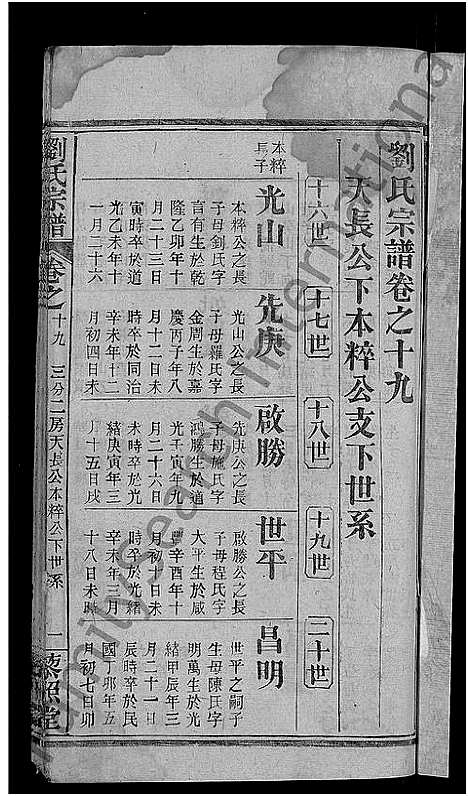 劉氏宗譜卷之十九
天長公下本粹公支下世系
十六世
十七世
十八世
十九世
二十世
本粹
長子
光山
本粹公之長
子母劉氏字
言有生於乾
隆乙卯年十
月二十三日
寅時卒於道
光乙未年十
一月二十六
先庚
光山公之長
子母羅氏字
金周生於嘉
慶丙子年八
月十二日未
時卒於同治
辛未年十二
月初四日未
啟勝
先庚公之長
子母施氏字
鴻勝生於道
光壬寅年九
月二十六日
未時卒於光
緒庚寅年三
月十五日戌
世平
啟勝公之長
子母程氏字
大平生於咸
豐辛酉年十
月初十日未
時卒於光緒
辛未年三月
十八日未時
昌明
世平之嗣子
生母陳氏字
明萬生於光
緒甲辰年三
月二十一日
辰時卒於民
國丁卯年五
月初七日卯
劉氏宗譜
卷之十九
三分二房天長公本粹公下世系
一
蒸照堂